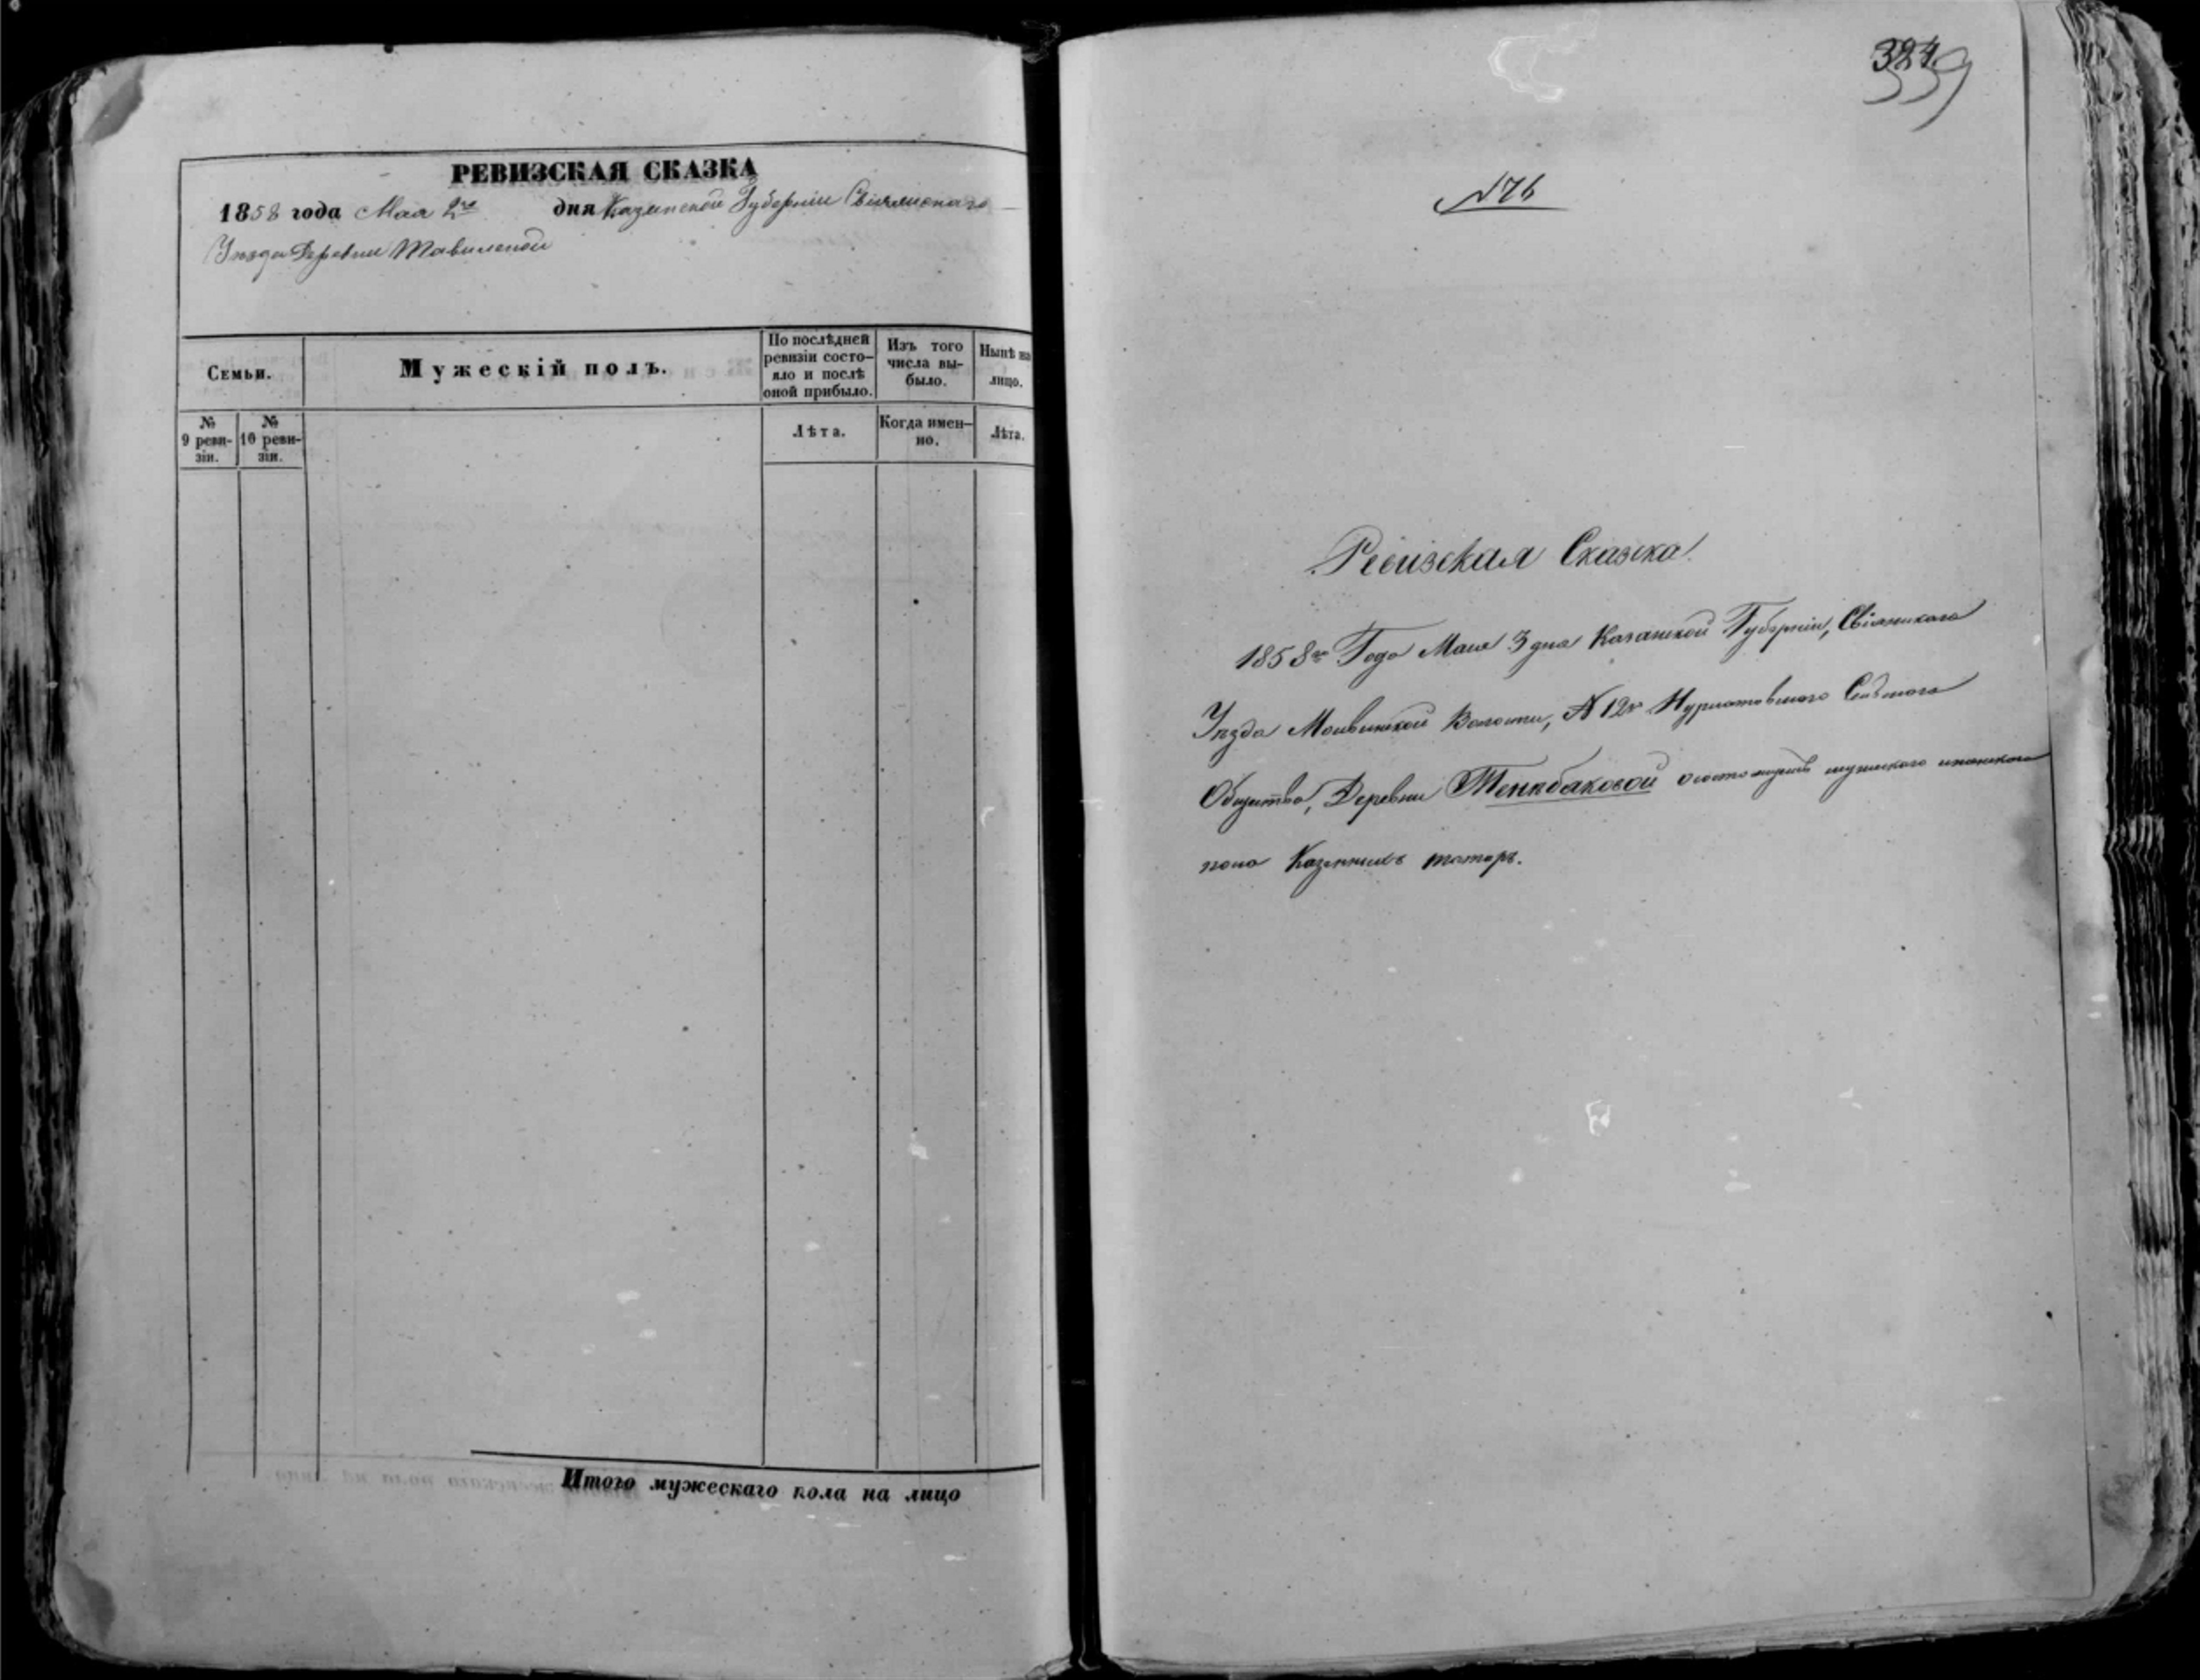 РЕВИЗСКАЯ СКАЗКА
1858 года Маа 2го дня Казанской Губерніи Свіяжскаго
Уѣзда Деревни
Семьи.
Мужескій полъ.
По послѣдней ревизіи состо-
яло и послѣ оной прибыло.
Изъ того числа вы-
было.
Нынѣ на лицо.
№ 9 реви-
зіи.
№ 10 реви-
зіи.
Лѣта.
Когда имен-
но.
Лѣта.
Итого мужескаго пола на лицо
324
339
№76
Ревизская Сказка.
1858го Года Маия 3 дня Казанской Губерніи, Свіяжскаго
Уѣзда Волости, № 12го Нурлатовскаго Сельскаго
Общества, Деревни Тенкбаковой о состоящихъ мужескаго и женскаго
пола Казенныхъ татаръ.